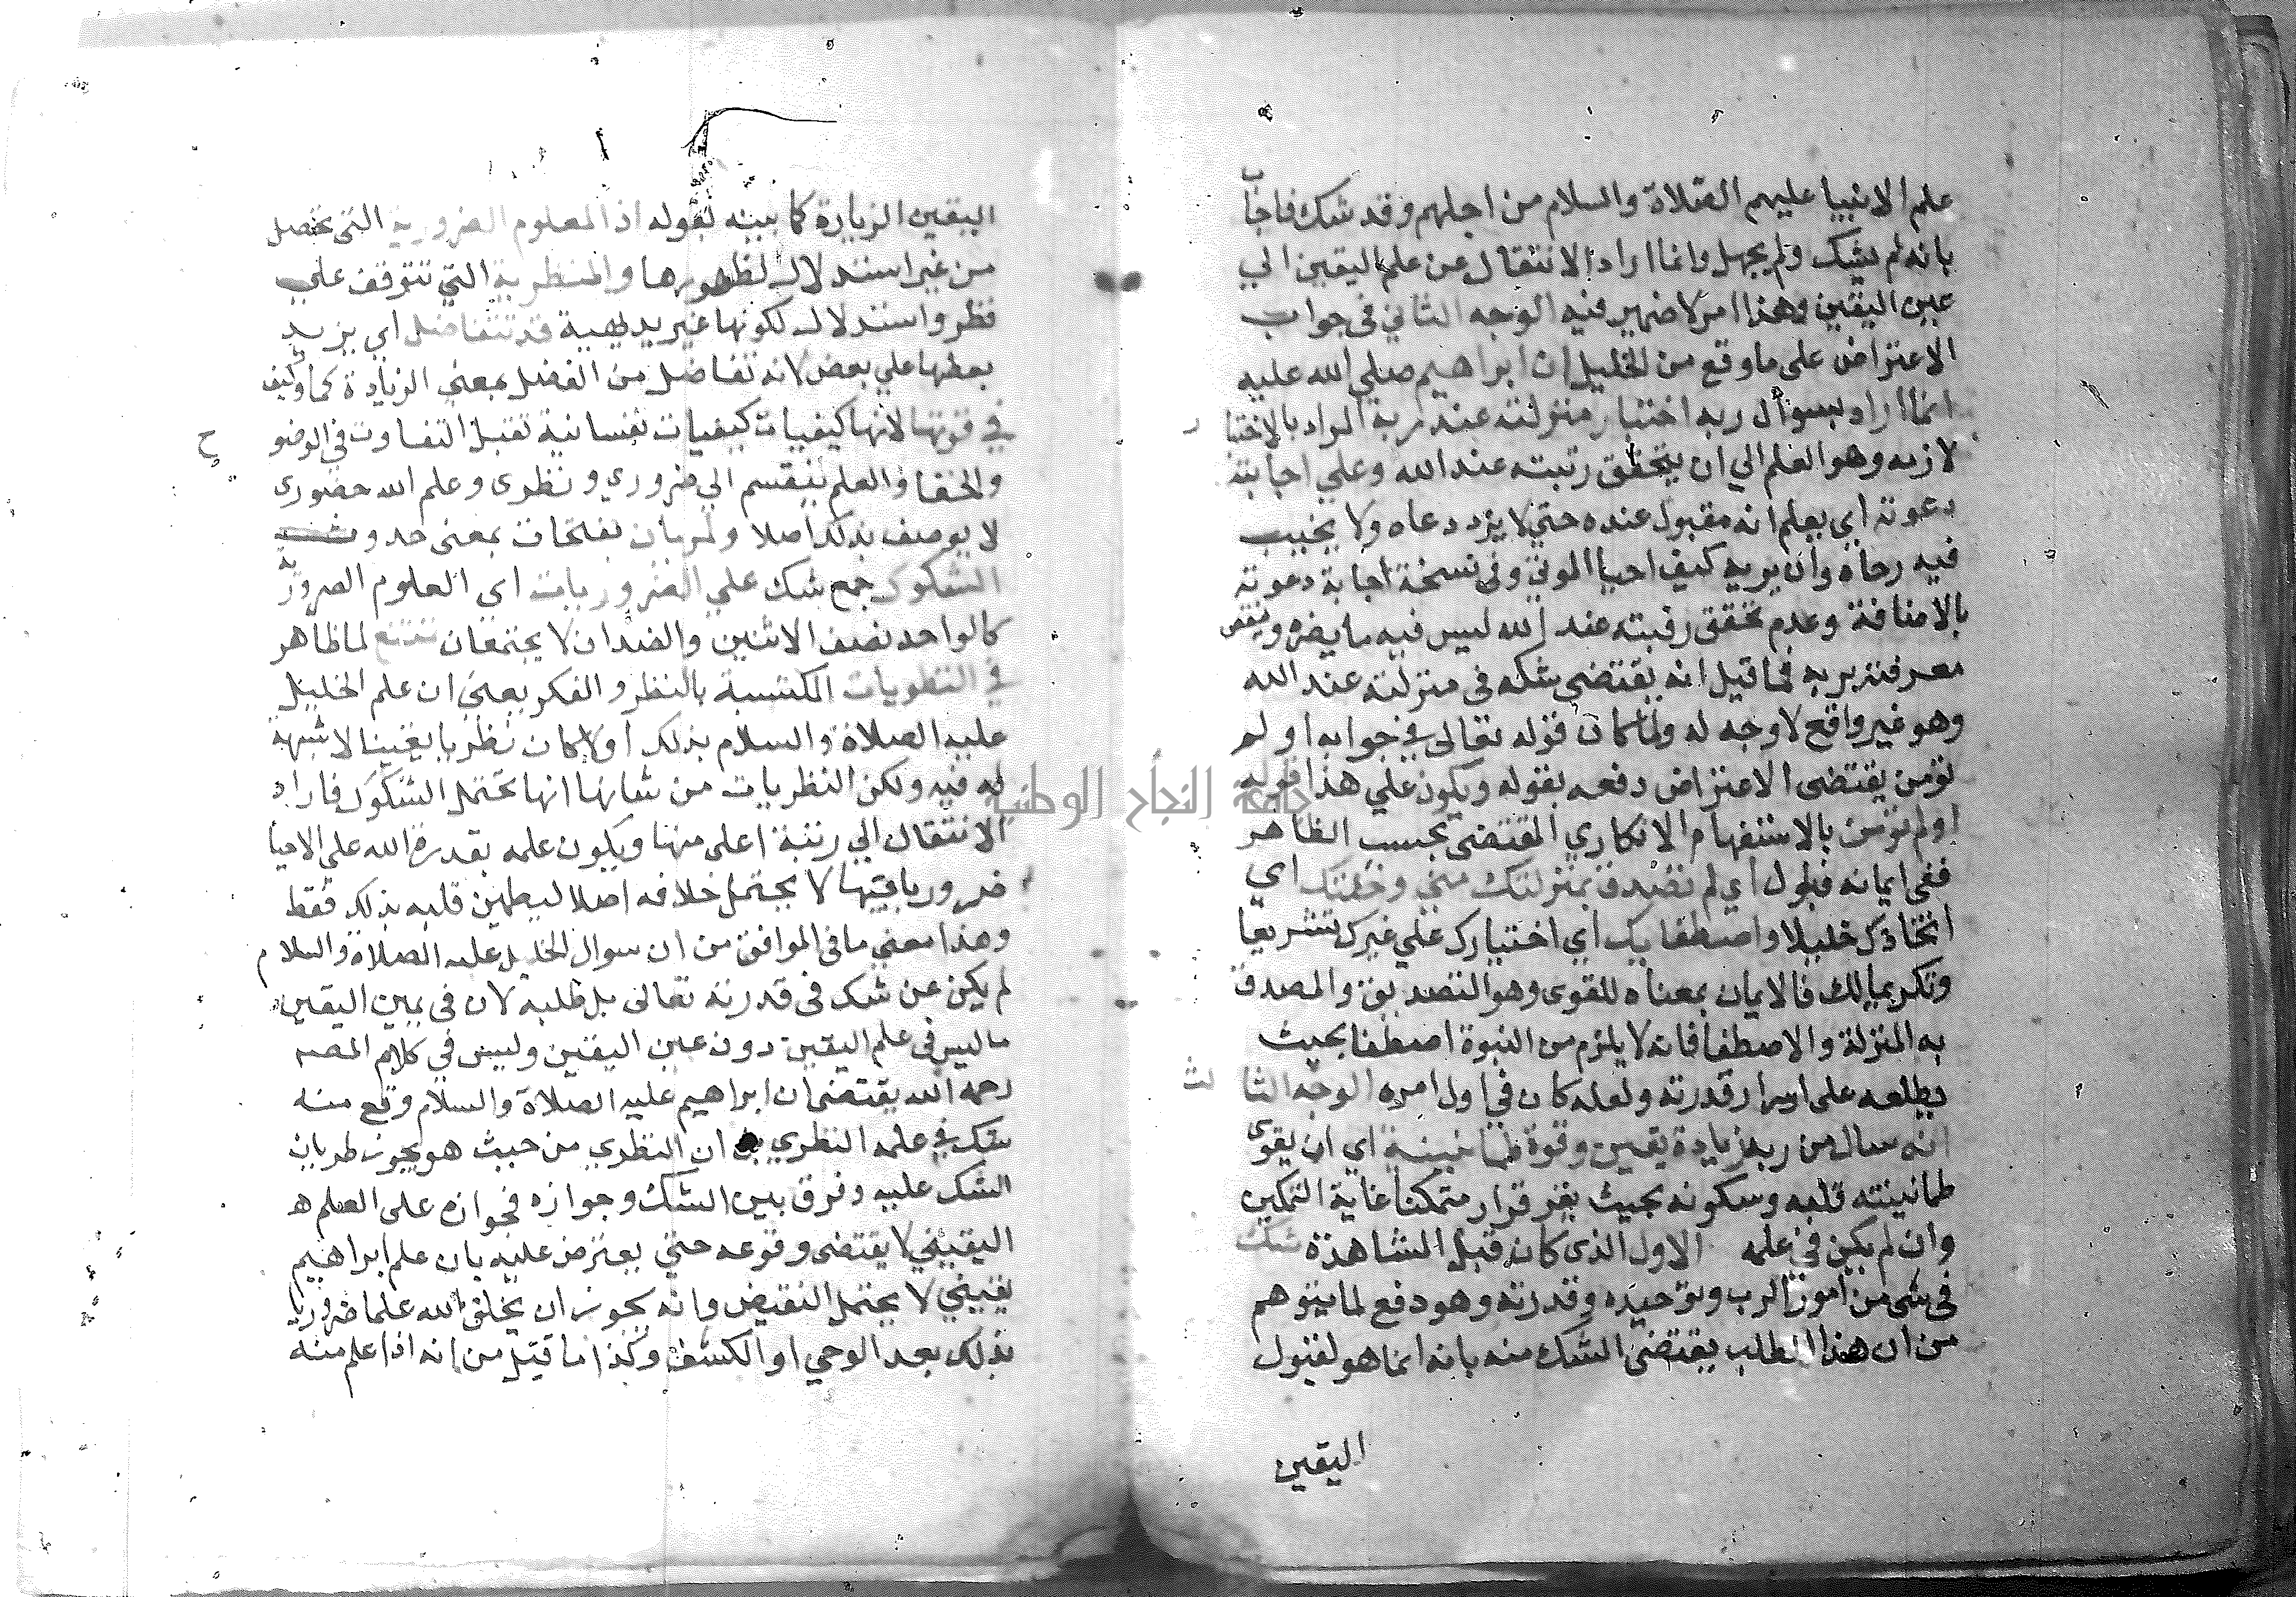 علم الانبيا عليهم الصلاة والسلام من اجلهم وقد شك فاجاب
بانه لم يشك ولم يجهل وانما اراد الانتقال عن علم اليقين الي
عين اليقين وهذا امر لا ضير فيه الوجه الثاني في جواب
الاعتراض على ما وقع من الخليل ان ابراهيم صلي الله عليه
انما اراد بسوال ربه اختبار منزلته عند ربه المراد بالاختبار
لازمه وهو العلم الي ان يتحقق رتبته عند الله وعلي اجابته
دعوته اي يعلم انه مقبول عنده حتي لا يرد دعاه ولا يخيب
فيه رجاه وان يريه كيف احيا الموتي وفي نسخة اجابة دعوته
بالاضافة وعدم تحقق رقبته عند الله ليس فيه ما يضره وينقص
معرفته بربه فما قيل انه يقتضي شكه في منزلته عند الله
وهو غير واقع لا وجه له ولما كان قوله تعالى في جوابه او لم
تؤمن يقتضى الاعتراض دفعه بقوله ويكون علي هذا قوله
اولم تؤمن بالاستفهام الانكاري المقتضى بحسب الظاهر
نفي ايمانه فيقول اي لم تصدق بمنزلتك مني وخلتك اي
اتخاذك خليلا واصطفايك اي اختيارك علي غيرك تشريفا
وتكريما لك فالايمان بمعناه اللغوى وهو التصديق والمصدق
به المنزلة والاصطفا فانه لا يلزم من النبوة اصطفا بحيث
يطلعه على اسرار قدرته ولعله كان في اول امره الوجه الثالث
انه سال من ربه زيادة يقين وقوة طمانينة اي ان يقوى
طمانينته قلبه وسكونه بحيث يقر قرار متمكنا غاية التمكين
وان لم يكن في علمه الاول الذى كان قبل المشاهدة شك
في شي من امور الرب وتوحيده وقدرته وهو دفع لما يتوهم
من ان هذا الطلب يقتضى الشك منه بانه انما هو لقبول
اليقين
اليقين الزيادة كما بينه بقوله اذ المعلوم الضرورية التى تحصل
من غير استدلال لظهورها والنظرية التي تتوقف علي
نظر واستدلال لكونها غير بديهية قد تتفاضل اي يزيد
بعضها علي بعض لانه تفاضل من الفضل بمعني الزيادة كما وكيف
في قوتها لانها كيفيات كيفيات نفسانية تقبل التفاوت في الوضوح
والخفا والعلم ينقسم الي ضروري ونظرى وعلم الله حضورى
لا يوصف بذلك اصلا ولمربان بفتحات بمعنى حدوث
الشكوك جمع شك علي الضروريات اى العلوم الضرورية
كالواحد نصف الاثنين والضدان لا يجتمعان تمتنع لما ظاهر
في النظريات المكتسبة بالنظر والفكر يعني ان علم الخليل
عليه الصلاة والسلام بذلك اولا كان نظريا يقينيا لا شبهة
له فيه ولكن النظريات من شانها انها تحتمل الشكوك فاراد
الانتقال الي رتبة اعلى منها ويكون علمه بقدرة الله علي الاحيا
ضروريا يقينيا لا يحتمل خلافه اصلا ليطمين قلبه بذلك فقط
وهذا معني ما في المواقف من ان سوال الخليل عليه الصلاة والسلام
لم يكن عن شك في قدرته تعالى بل طلبه لان في عين اليقين
ما ليس في علم اليقين دون عين اليقين وليس في كلام المصه
رحمه الله يقتضى ان ابراهيم عليه الصلاة والسلام وقع منه
شك في علمه النظري ان النظري من حيث هو يجوز طريان
الشك عليه وفرق بين الشك وجوازه فجوازه على العلم
اليقيني لا يقتضى وقوعه حتي يعترض عليه بان علم ابراهيم
يقيني لا يحتمل النقيض وانه يجوز ان يخلق الله علما ضروريا
بذلك بعد الوحي او الكشف وكذا ما قيل من انه اذا علم منه
جامعة النجاح الوطنية